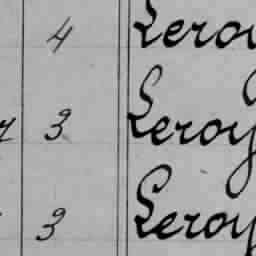 4 Leroy
3 Leroy
3 Leroy